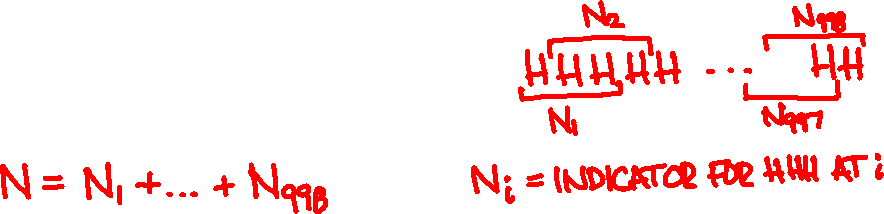 N₂ N₉₉₈
H H H H H ... H H
N₁ N₉₉₇
N = N₁ + ... + N₉₉₈
Nᵢ = INDICATOR FOR HHH AT i